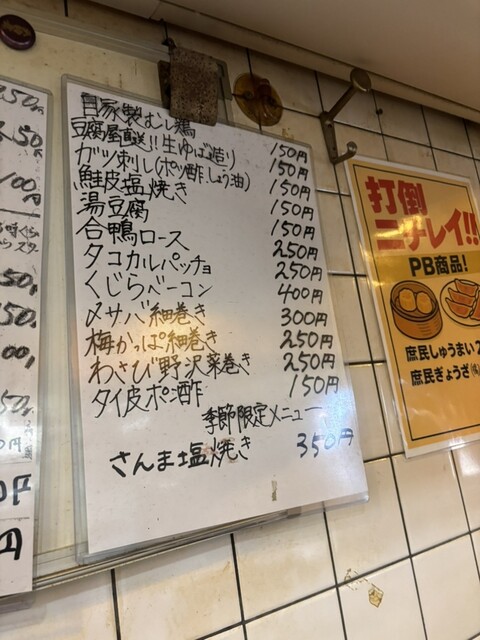 自家製むし鶏 150円
豆腐屋直送!!生ゆば造り 150円
ガツ刺し(ポン酢、しょう油) 150円
鮭皮塩焼き 150円
湯豆腐 150円
合鴨ロース 250円
タコカルパッチョ 250円
くじらベーコン 400円
〆サバ細巻き 300円
梅かっぱ細巻き 250円
わさび野沢菜巻き 250円
タイ皮ポン酢 150円
季節限定メニュー
さんま塩焼き 350円
打倒
ニチレイ!!
PB商品!
庶民しゅうまい
庶民ぎょうざ